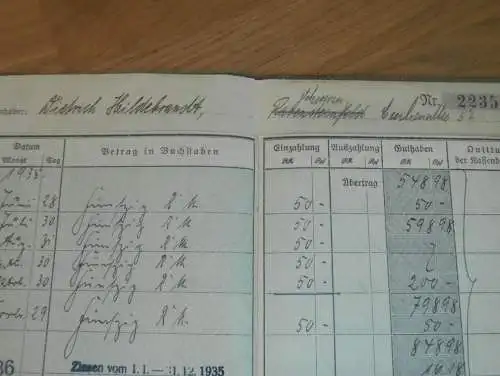 Dietrich Hildebrandt, Schwerin
Nr. 2235
Datum Betrag in Buchstaben Einzahlung Auszahlung Guthaben Quittu
Monat Tag RM Rpf RM Rpf RM Rpf der Kassenb
1935. Übertrag 548 98
Juni 28 fünfzig RM 50 - 50 -
Juli 30 fünfzig RM 50 - 598 98
Aug. 31 fünfzig RM 50 -
30 fünfzig RM 50 -
30 fünfzig RM 50 - 200 -
798 98
29 fünfzig RM 50 - 50 -
848 98
36 Zinsen vom 1.1. — 31.12.1935 16 18